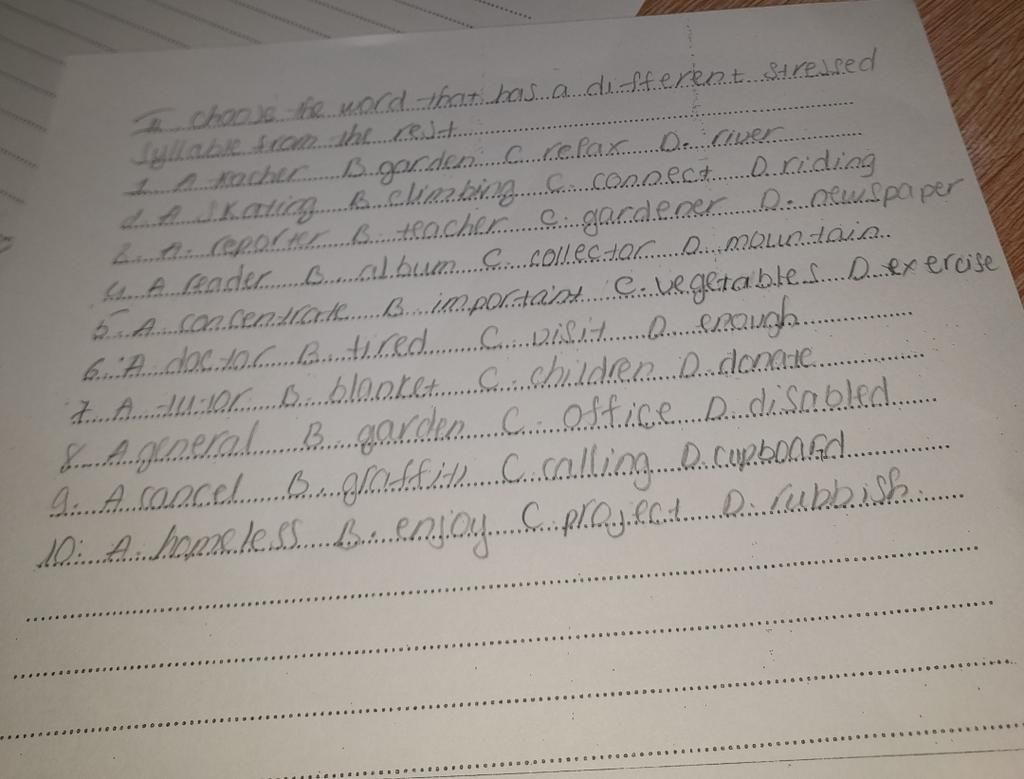 II choose the word that has a different stressed
syllable from the rest
1 A. teacher B garden C relax D. river
2. A skating B climbing C. connect D. riding
3. A. reporter B. teacher C. gardener D. newspaper
4. A reader B. album C. collector D. mountain
5. A concentrate B. important C. vegetables D. exercise
6. A doctor B. tired C. visit D. enough
7. A tutor B. blanket C. children D. donate
8. A general B. garden C. office D. disabled
9. A cancel B. graffiti C. calling D. cupboard
10: A. homeless B. enjoy C project D. rubbish